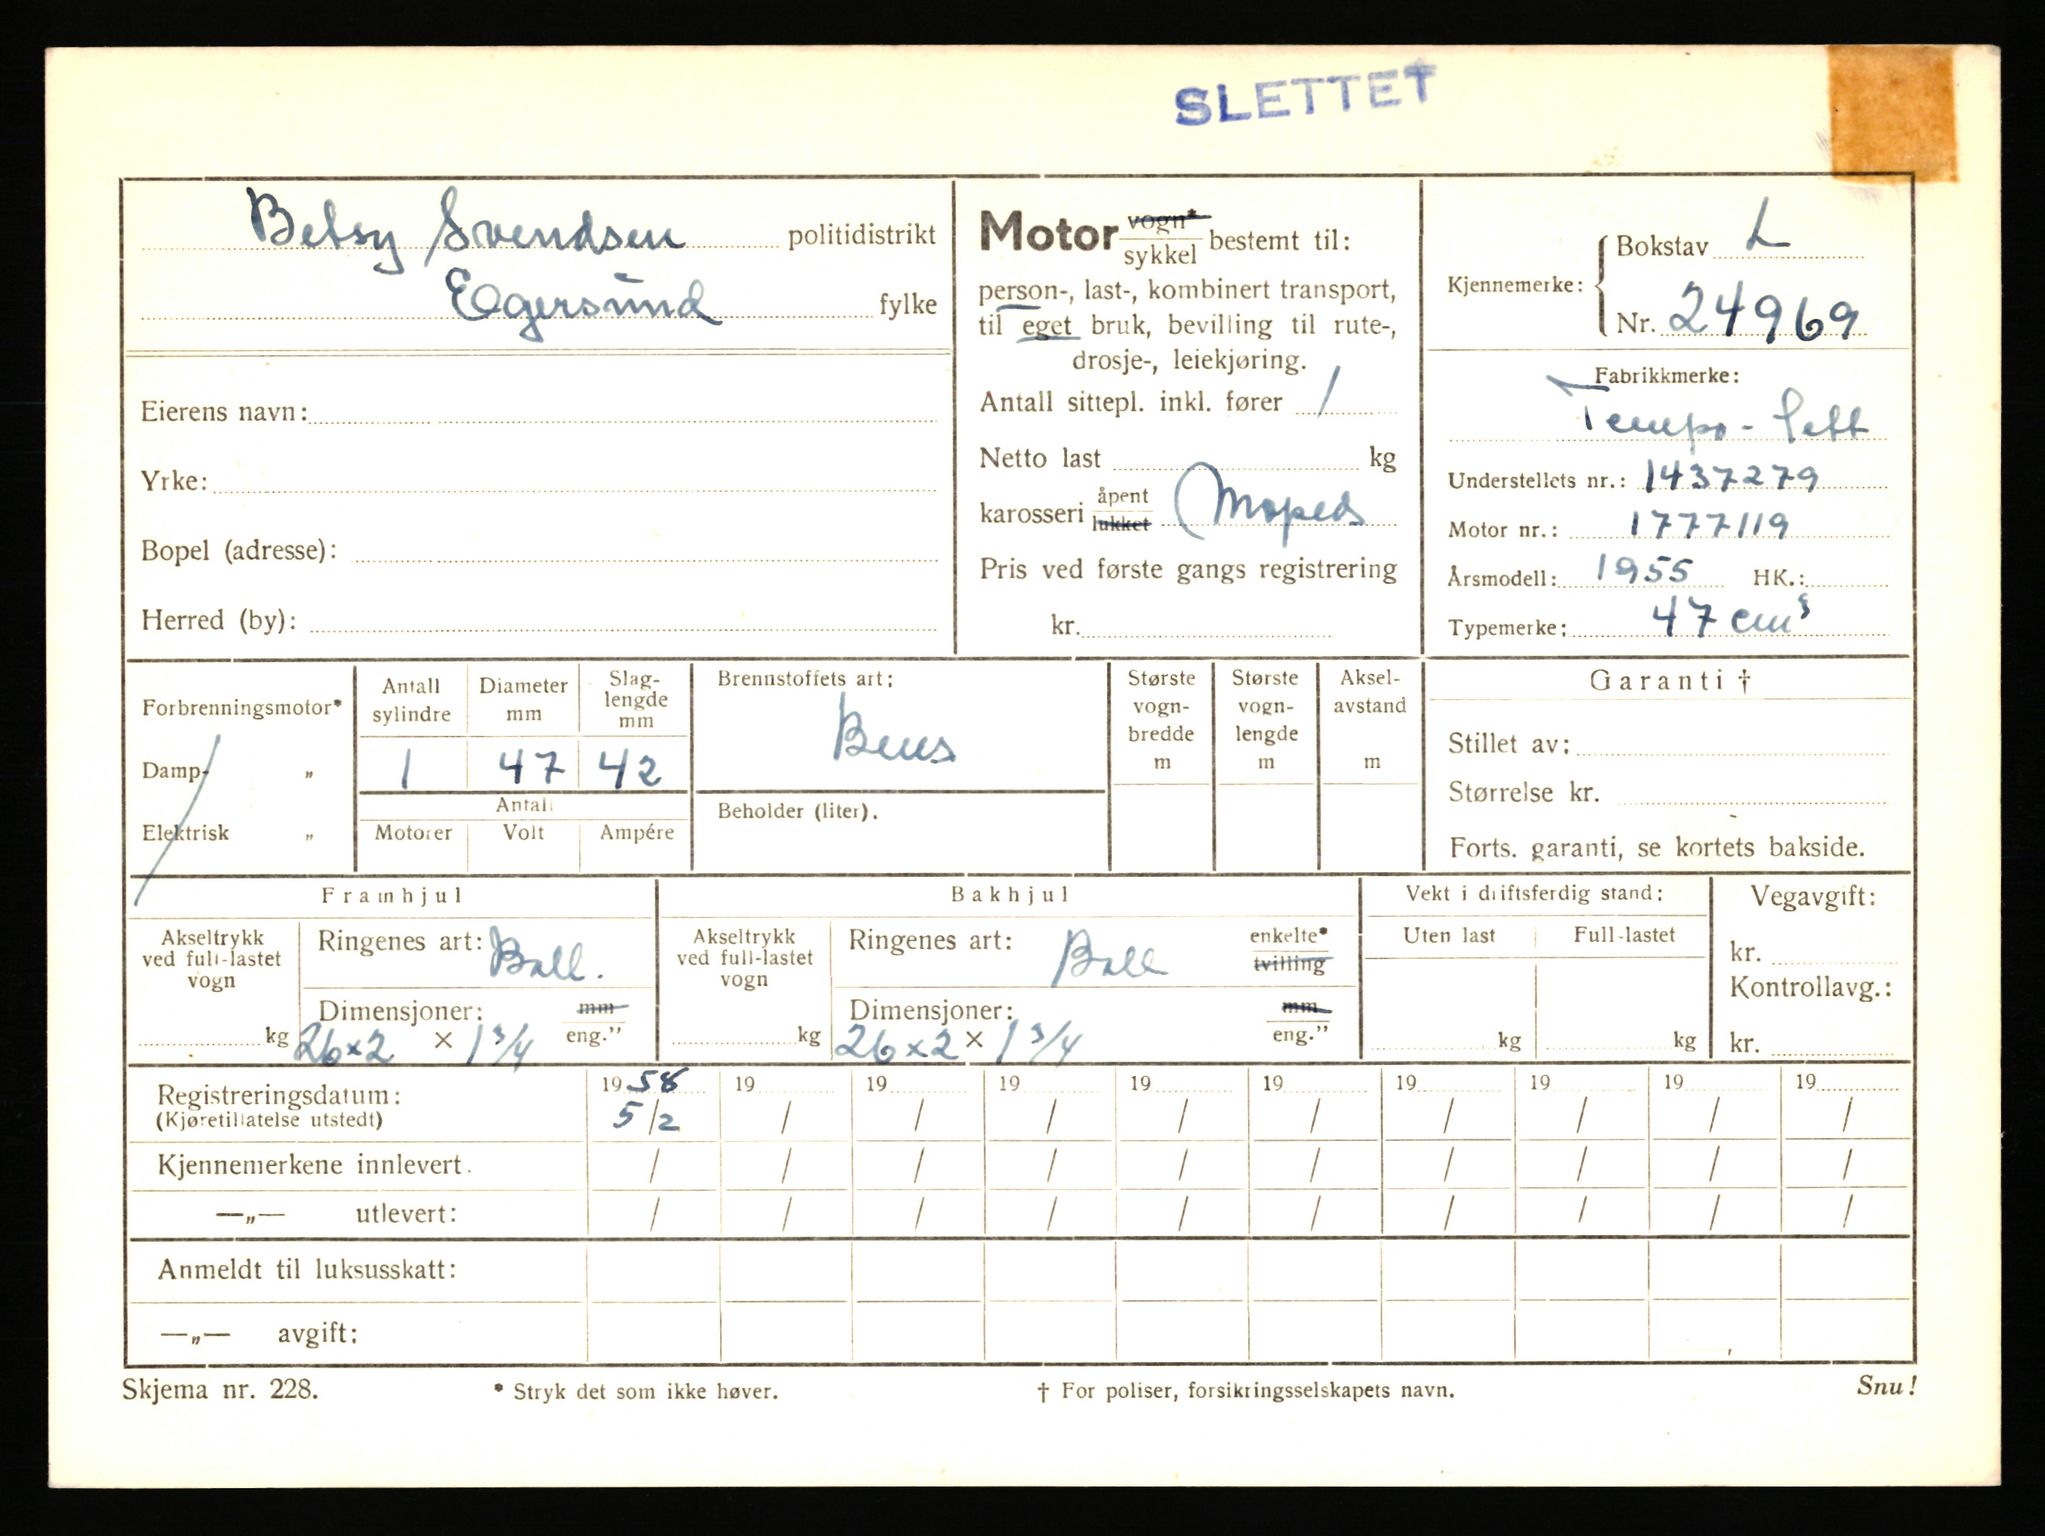 SLETTET
Betsy Svendsen politidistrikt
Egersund fylke
Eierens navn:
Yrke:
Bopel (adresse):
Herred (by):
Motor vogn* / sykkel bestemt til:
person-, last-, kombinert transport,
til eget bruk, bevilling til rute-,
drosje-, leiekjøring.
Antall sittepl. inkl. fører 1
Netto last kg
karosseri åpent / lukket Moped
Pris ved første gangs registrering
kr.
Kjennemerke: Bokstav L
Nr. 24969
Fabrikkmerke:
Tempo - Lett
Understellets nr.: 1437279
Motor nr.: 1777119
Årsmodell: 1955 HK.:
Typemerke: 47 cm³
Forbrenningsmotor*
Damp- "
Elektrisk "
Antall sylindre Diameter mm Slag-lengde mm
1 47 42
Antall
Motorer Volt Ampére
Brennstoffets art:
Bens
Beholder (liter).
Største vogn-bredde m
Største vogn-lengde m
Aksel-avstand m
Garanti †
Stillet av:
Størrelse kr.
Forts. garanti, se kortets bakside.
Framhjul
Akseltrykk ved full-lastet vogn
kg
Ringenes art: Ball.
Dimensjoner: mm / eng."
26 x 2 × 1 3/4
Bakhjul
Akseltrykk ved full-lastet vogn
kg
Ringenes art: Ball enkelte* / tvilling
Dimensjoner: mm / eng."
26 x 2 × 1 3/4
Vekt i driftsferdig stand:
Uten last Full-lastet
kg kg
Vegavgift:
kr.
Kontrollavg.:
kr.
Registreringsdatum: 1958 19 19 19 19 19 19 19 19 19
(Kjøretillatelse utstedt) 5/2 / / / / / / / / /
Kjennemerkene innlevert. / / / / / / / / / /
—„— utlevert: / / / / / / / / / /
Anmeldt til luksusskatt:
—„— avgift:
Skjema nr. 228. * Stryk det som ikke høver. † For poliser, forsikringsselskapets navn. Snu!